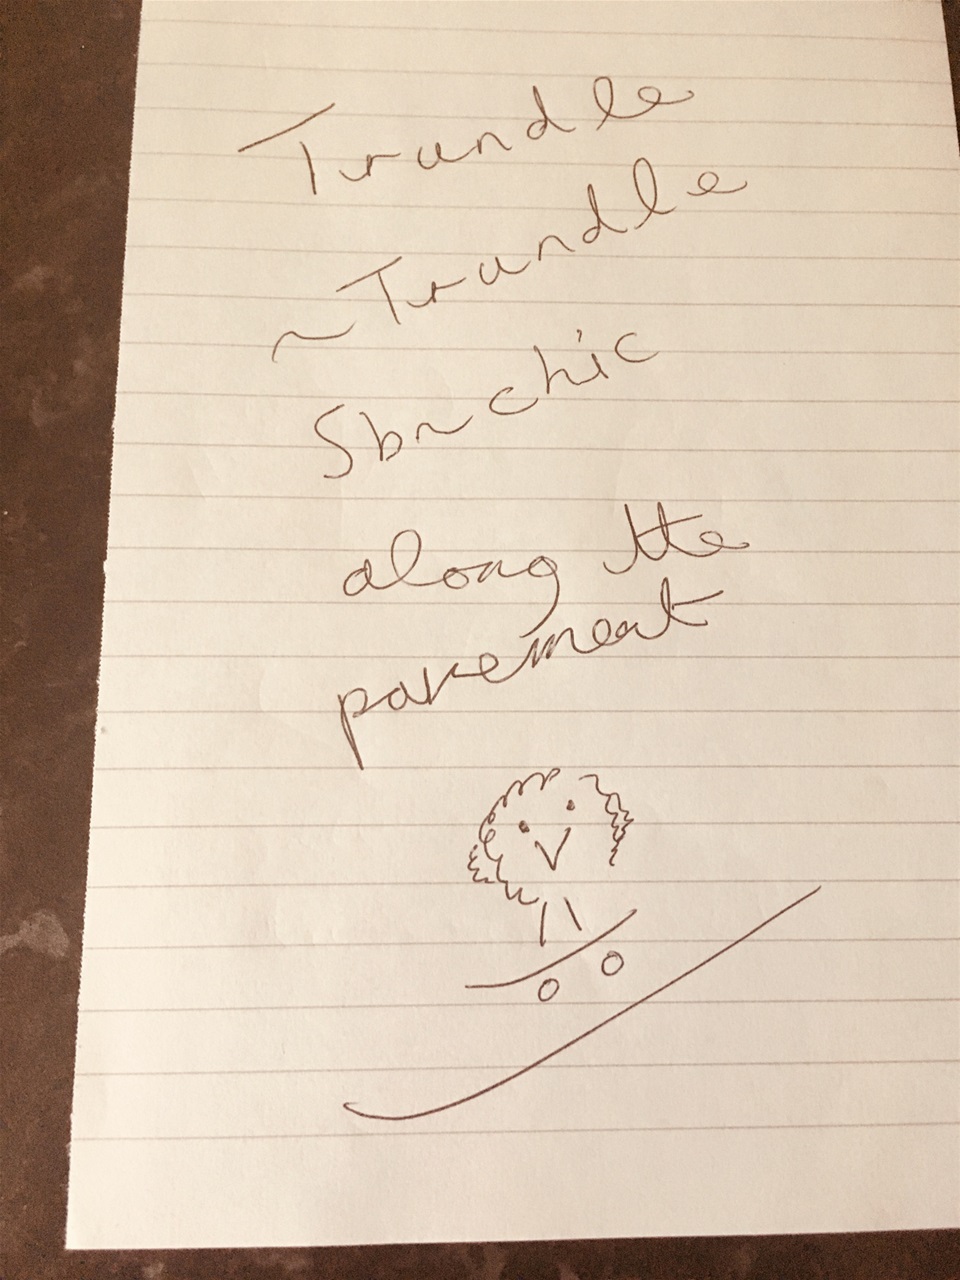 Trundle
~Trundle
Sbrchic
along the
pavement